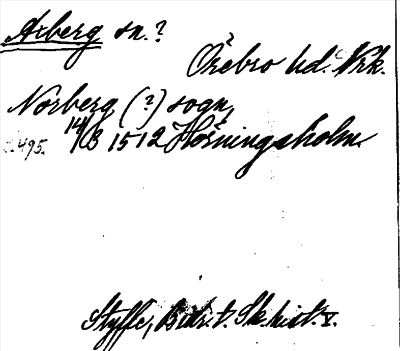 Arberg sn.?
Örebro hd. Nrk.
Norberg (?) sogn,
14/8 1512 Hörningsholm.
s. 495.
Styffe, Bidr. t. Sk. hist. V.